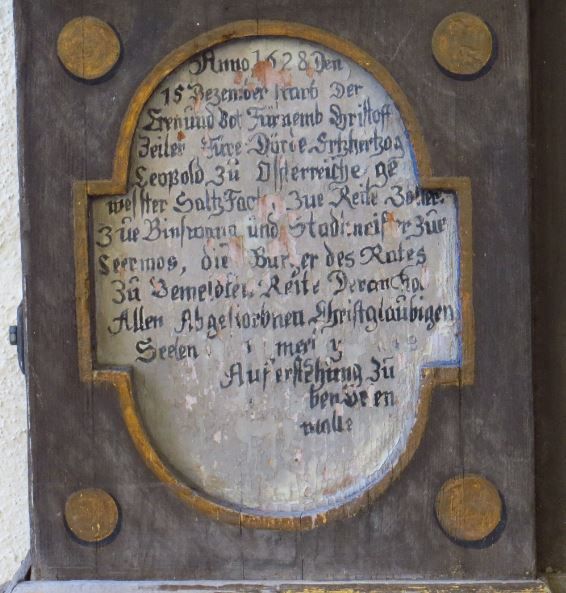 Anno 1628 Den
15 Dezember starb Der
Ernúnd Vot Fúrnemb Christoff
Zeiler Fúre Dörte Ertzhertzog
Leopold zú Österreiche, ge
wester Saltz Fact zúe Reite
zúe Binswang únd Stadtmeister zúe
Leermos, die Búrger des Rates
zú Bemeldten Reite Deran
Allen Abgestorbnen Christglaúbigen
Seelen
Auferstehúng zú
wolle